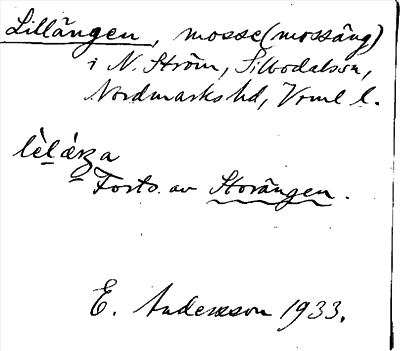 Lillängen, mosse (mossäng)
i N. Ström, Silbodalssn,
Nordmarks hd, Vrml l.
Forts. av Storängen.
E. Andersson 1933.